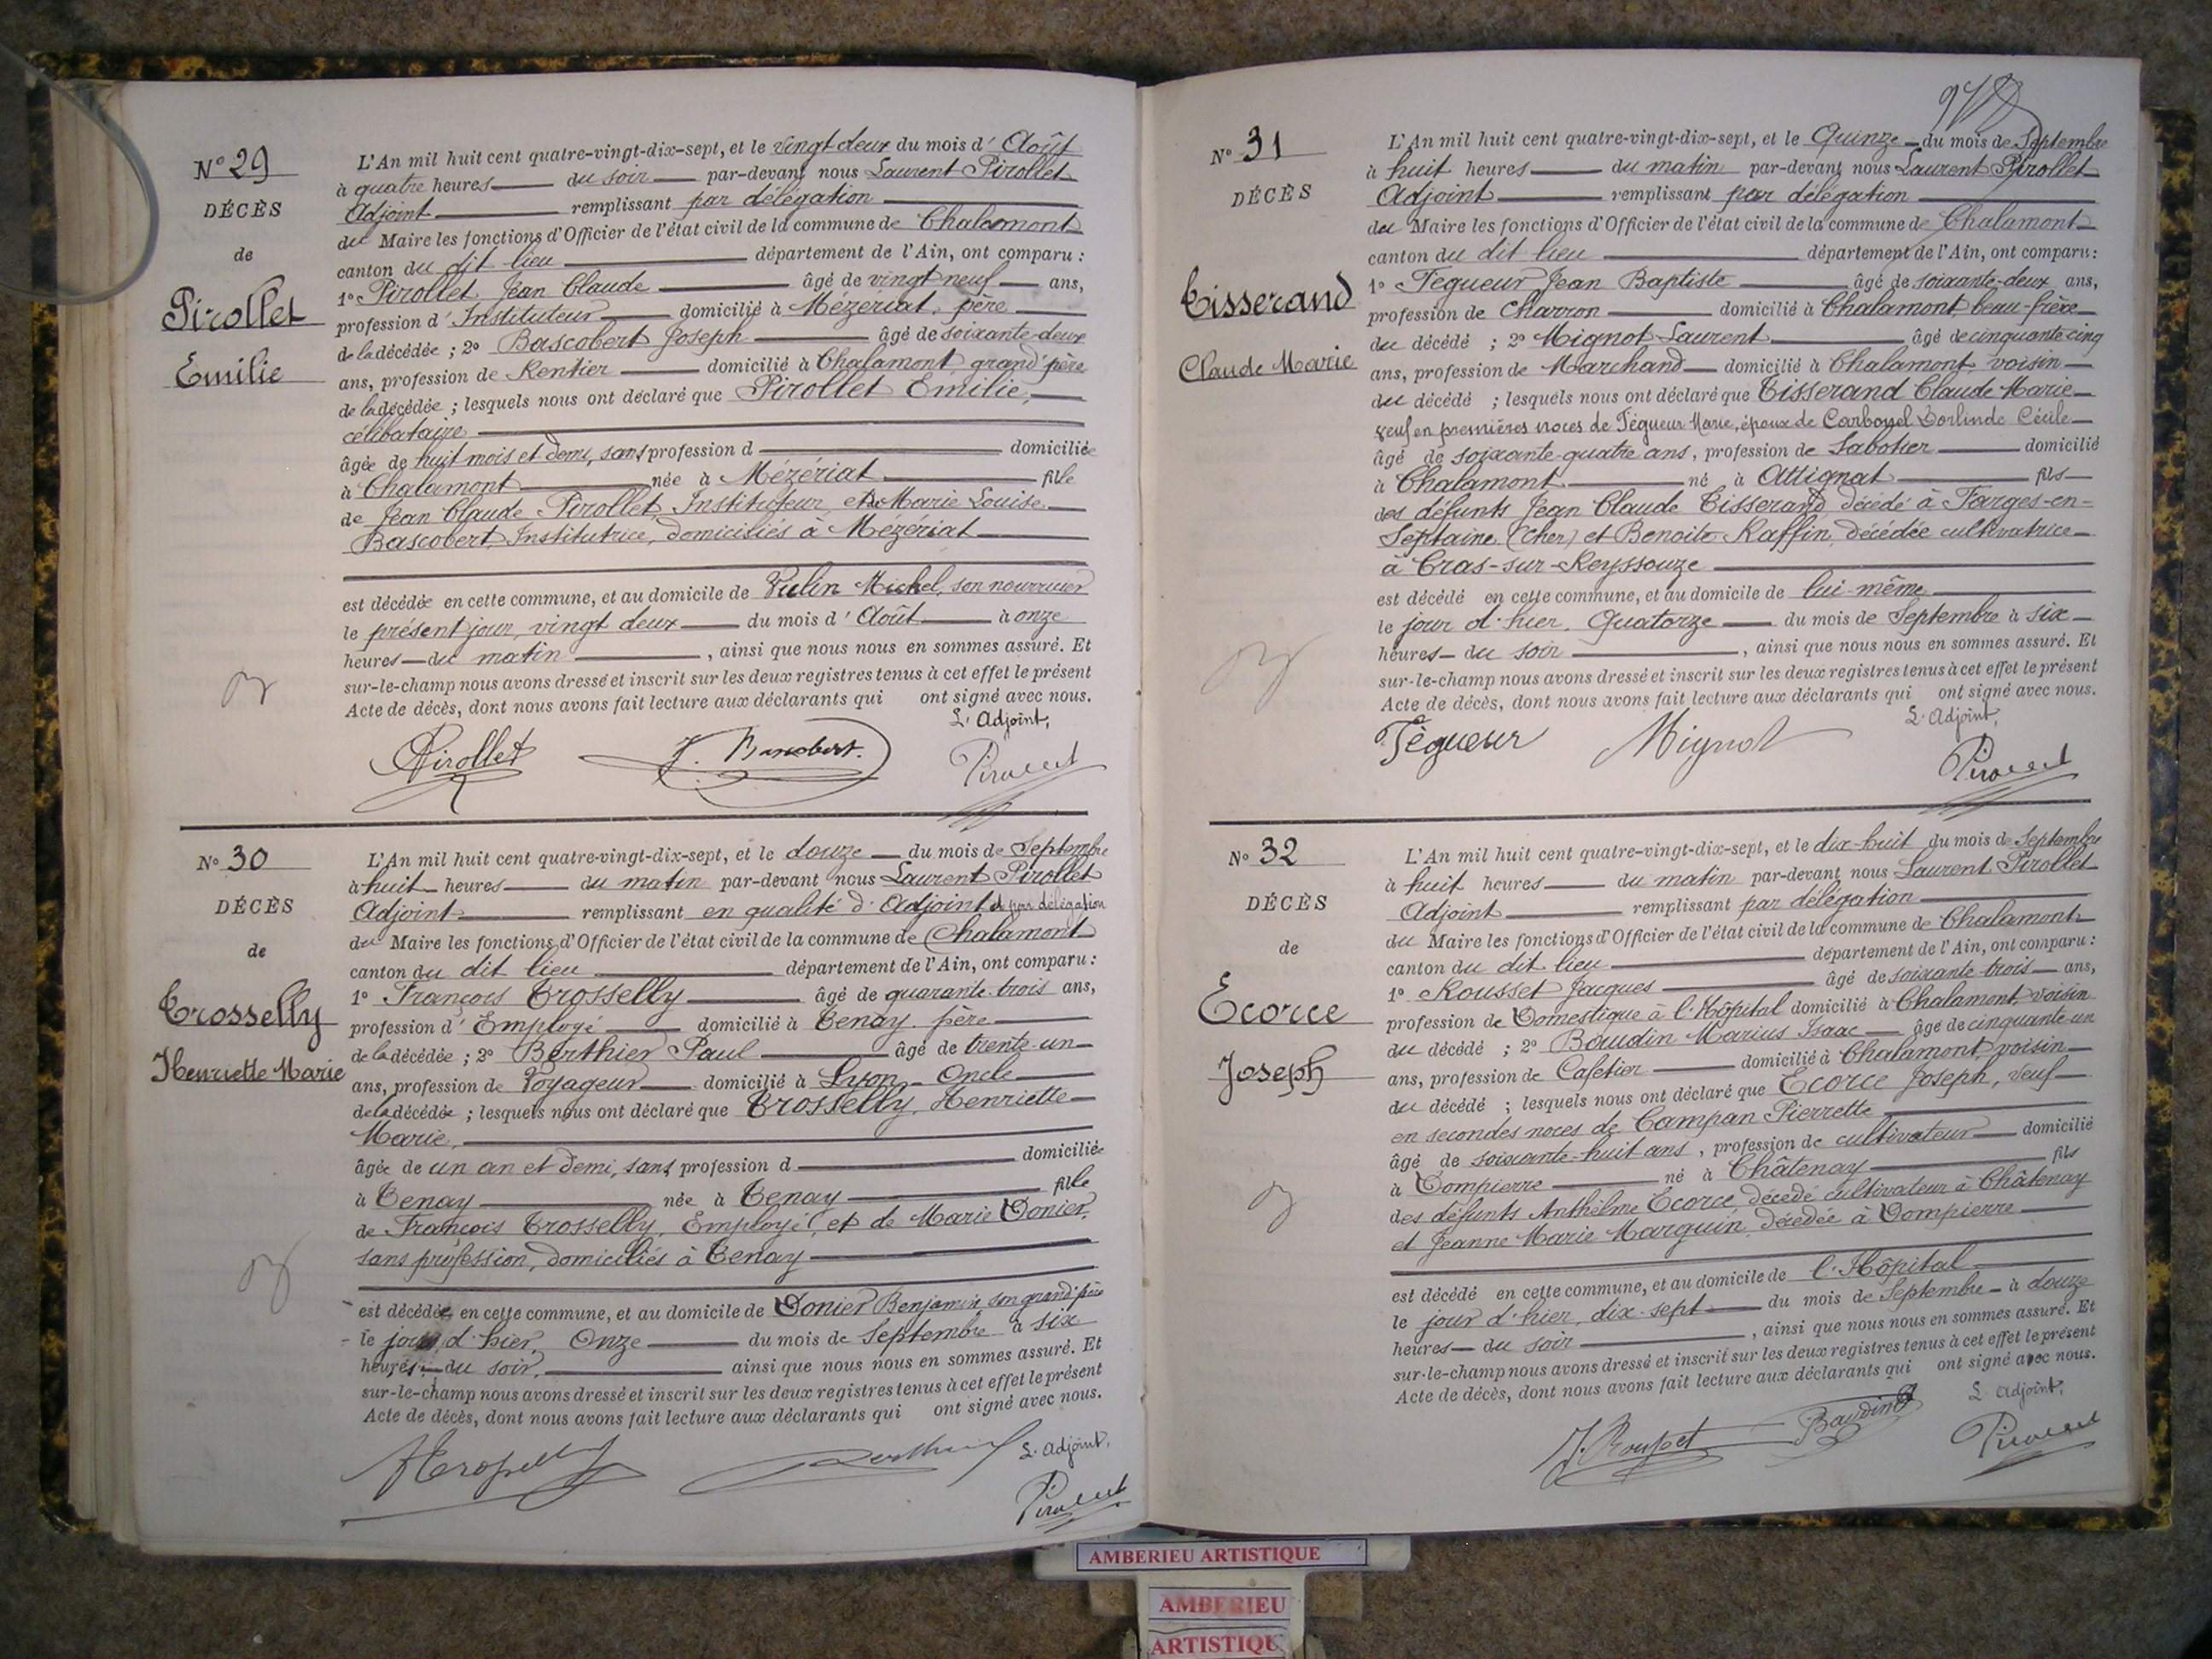 N° 29
DÉCÈS
de
Pirollet
Emilie
L'An mil huit cent quatre-vingt-dix-sept, et le vingt deux du mois d' Août
à quatre heures du soir par-devant nous Laurent Pirollet
Adjoint remplissant par délégation
du Maire les fonctions d'Officier de l'état civil de la commune de Chalamont
canton du dit lieu département de l'Ain, ont comparu :
1° Pirollet Jean Claude âgé de vingt neuf ans,
profession d' Instituteur domicilié à Mézériat, père
de la décédée ; 2° Bascobert Joseph âgé de soixante-deux
ans, profession de Rentier domicilié à Chalamont, grand'père
de la décédée ; lesquels nous ont déclaré que Pirollet Emilie,
célibataire
âgée de huit mois et demi, sans profession d domiciliée
à Chalamont née à Mézériat fille
de Jean Claude Pirollet, Instituteur, et de Marie Louise
Bascobert, Institutrice, domiciliés à Mézériat
est décédée en cette commune, et au domicile de Vulin Michel, son nourricier
le présent jour, vingt deux du mois d' Août à onze
heures du matin , ainsi que nous nous en sommes assuré. Et
sur-le-champ nous avons dressé et inscrit sur les deux registres tenus à cet effet le présent
Acte de décès, dont nous avons fait lecture aux déclarants qui ont signé avec nous.
L'Adjoint,
Pirollet J. Bascobert. Pirollet
N° 30
DÉCÈS
de
Trosselly
Henriette Marie
L'An mil huit cent quatre-vingt-dix-sept, et le douze du mois de Septembre
à huit heures du matin par-devant nous Laurent Pirollet
Adjoint remplissant en qualité d'Adjoint et par délégation
du Maire les fonctions d'Officier de l'état civil de la commune de Chalamont
canton du dit lieu département de l'Ain, ont comparu :
1° François Trosselly âgé de quarante-trois ans,
profession d' Employé domicilié à Tenay, père
de la décédée ; 2° Berthier Paul âgé de trente-un
ans, profession de Voyageur domicilié à Lyon - Oncle
de la décédée ; lesquels nous ont déclaré que Trosselly, Henriette
Marie,
âgée de un an et demi, sans profession d domiciliée
à Tenay née à Tenay fille
de François Trosselly, Employé, et de Marie Donier,
sans profession, domiciliés à Tenay
est décédée en cette commune, et au domicile de Donier Benjamin, son grand'père
le jour d'hier, Onze du mois de Septembre à six
heures du soir, ainsi que nous nous en sommes assuré. Et
sur-le-champ nous avons dressé et inscrit sur les deux registres tenus à cet effet le présent
Acte de décès, dont nous avons fait lecture aux déclarants qui ont signé avec nous.
L'Adjoint,
Pirollet
N° 31
DÉCÈS
Tisserand
Claude Marie
L'An mil huit cent quatre-vingt-dix-sept, et le Quinze du mois de Septembre
à huit heures du matin par-devant nous Laurent Pirollet
Adjoint remplissant par délégation
du Maire les fonctions d'Officier de l'état civil de la commune de Chalamont
canton du dit lieu département de l'Ain, ont comparu :
1° Tégueur Jean Baptiste âgé de soixante-deux ans,
profession de Charron domicilié à Chalamont, beau-frère
du décédé ; 2° Mignot Laurent âgé de cinquante cinq
ans, profession de Marchand domicilié à Chalamont, voisin
du décédé ; lesquels nous ont déclaré que Tisserand Claude Marie
veuf en premières noces de Tégueur Marie, époux de Carbonel Dorlinde Cécile
âgé de soixante-quatre ans, profession de Sabotier domicilié
à Chalamont né à Attignat fils
des défunts Jean Claude Tisserand, décédé à Farges-en-
Septaine (Cher) et Benoite Raffin, décédée cultivatrice
à Cras-sur-Reyssouze
est décédé en cette commune, et au domicile de lui-même
le jour d'hier, Quatorze du mois de Septembre à six
heures du soir , ainsi que nous nous en sommes assuré. Et
sur-le-champ nous avons dressé et inscrit sur les deux registres tenus à cet effet le présent
Acte de décès, dont nous avons fait lecture aux déclarants qui ont signé avec nous.
L'Adjoint,
Tégueur Mignot Pirollet
N° 32
DÉCÈS
de
Ecorce
Joseph
L'An mil huit cent quatre-vingt-dix-sept, et le dix-huit du mois de Septembre
à huit heures du matin par-devant nous Laurent Pirollet
Adjoint remplissant par délégation
du Maire les fonctions d'Officier de l'état civil de la commune de Chalamont
canton du dit lieu département de l'Ain, ont comparu :
1° Rousset Jacques âgé de soixante-trois ans,
profession de Domestique à l'Hôpital domicilié à Chalamont, voisin
du décédé ; 2° Baudin Marius Isaac âgé de cinquante-un
ans, profession de Cafetier domicilié à Chalamont, voisin
du décédé ; lesquels nous ont déclaré que Ecorce Joseph, veuf
en secondes noces de Campan Pierrette
âgé de soixante-huit ans, profession de cultivateur domicilié
à Dompierre né à Châtenay fils
des défunts Anthelme Ecorce, décédé cultivateur à Châtenay
et Jeanne Marie Marguin, décédée à Dompierre
est décédé en cette commune, et au domicile de l'Hôpital
le jour d'hier, dix-sept du mois de Septembre à douze
heures du soir , ainsi que nous nous en sommes assuré. Et
sur-le-champ nous avons dressé et inscrit sur les deux registres tenus à cet effet le présent
Acte de décès, dont nous avons fait lecture aux déclarants qui ont signé avec nous.
L'Adjoint,
J. Rousset Baudin Pirollet
AMBERIEU ARTISTIQUE
AMBERIEU
ARTISTIQU